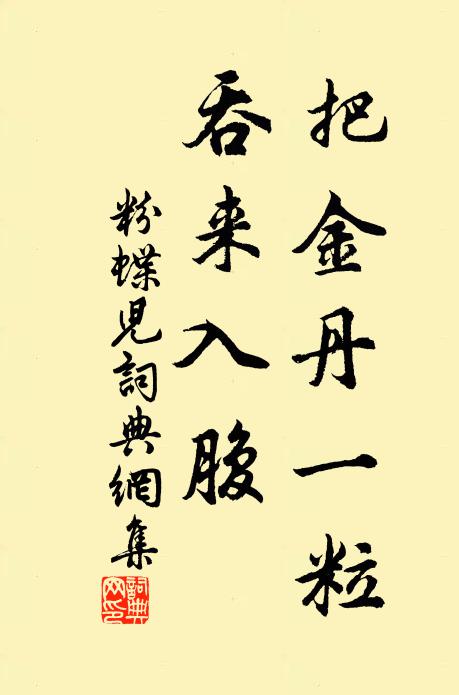 把金丹一粒
吞来入腹
粉蝶児詞典網集
詞典网印